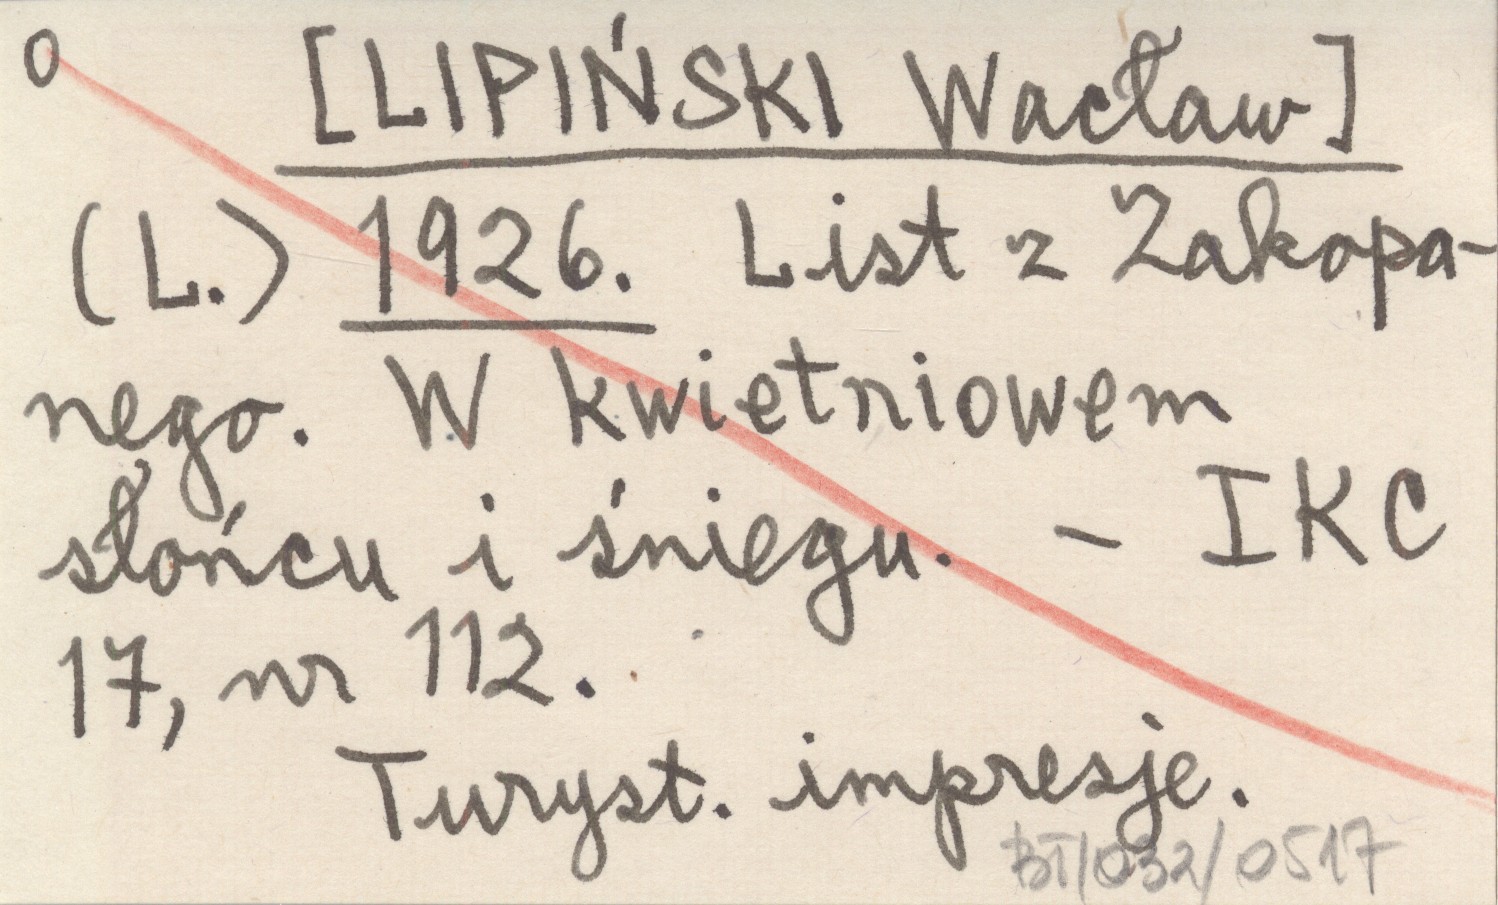 o [LIPIŃSKI Wacław]
(L.) 1926. List z Zakopa-
nego. W kwietniowem
słońcu i śniegu. - IKC
17, nr 112.
Turyst. impresje.
BT/032/0517